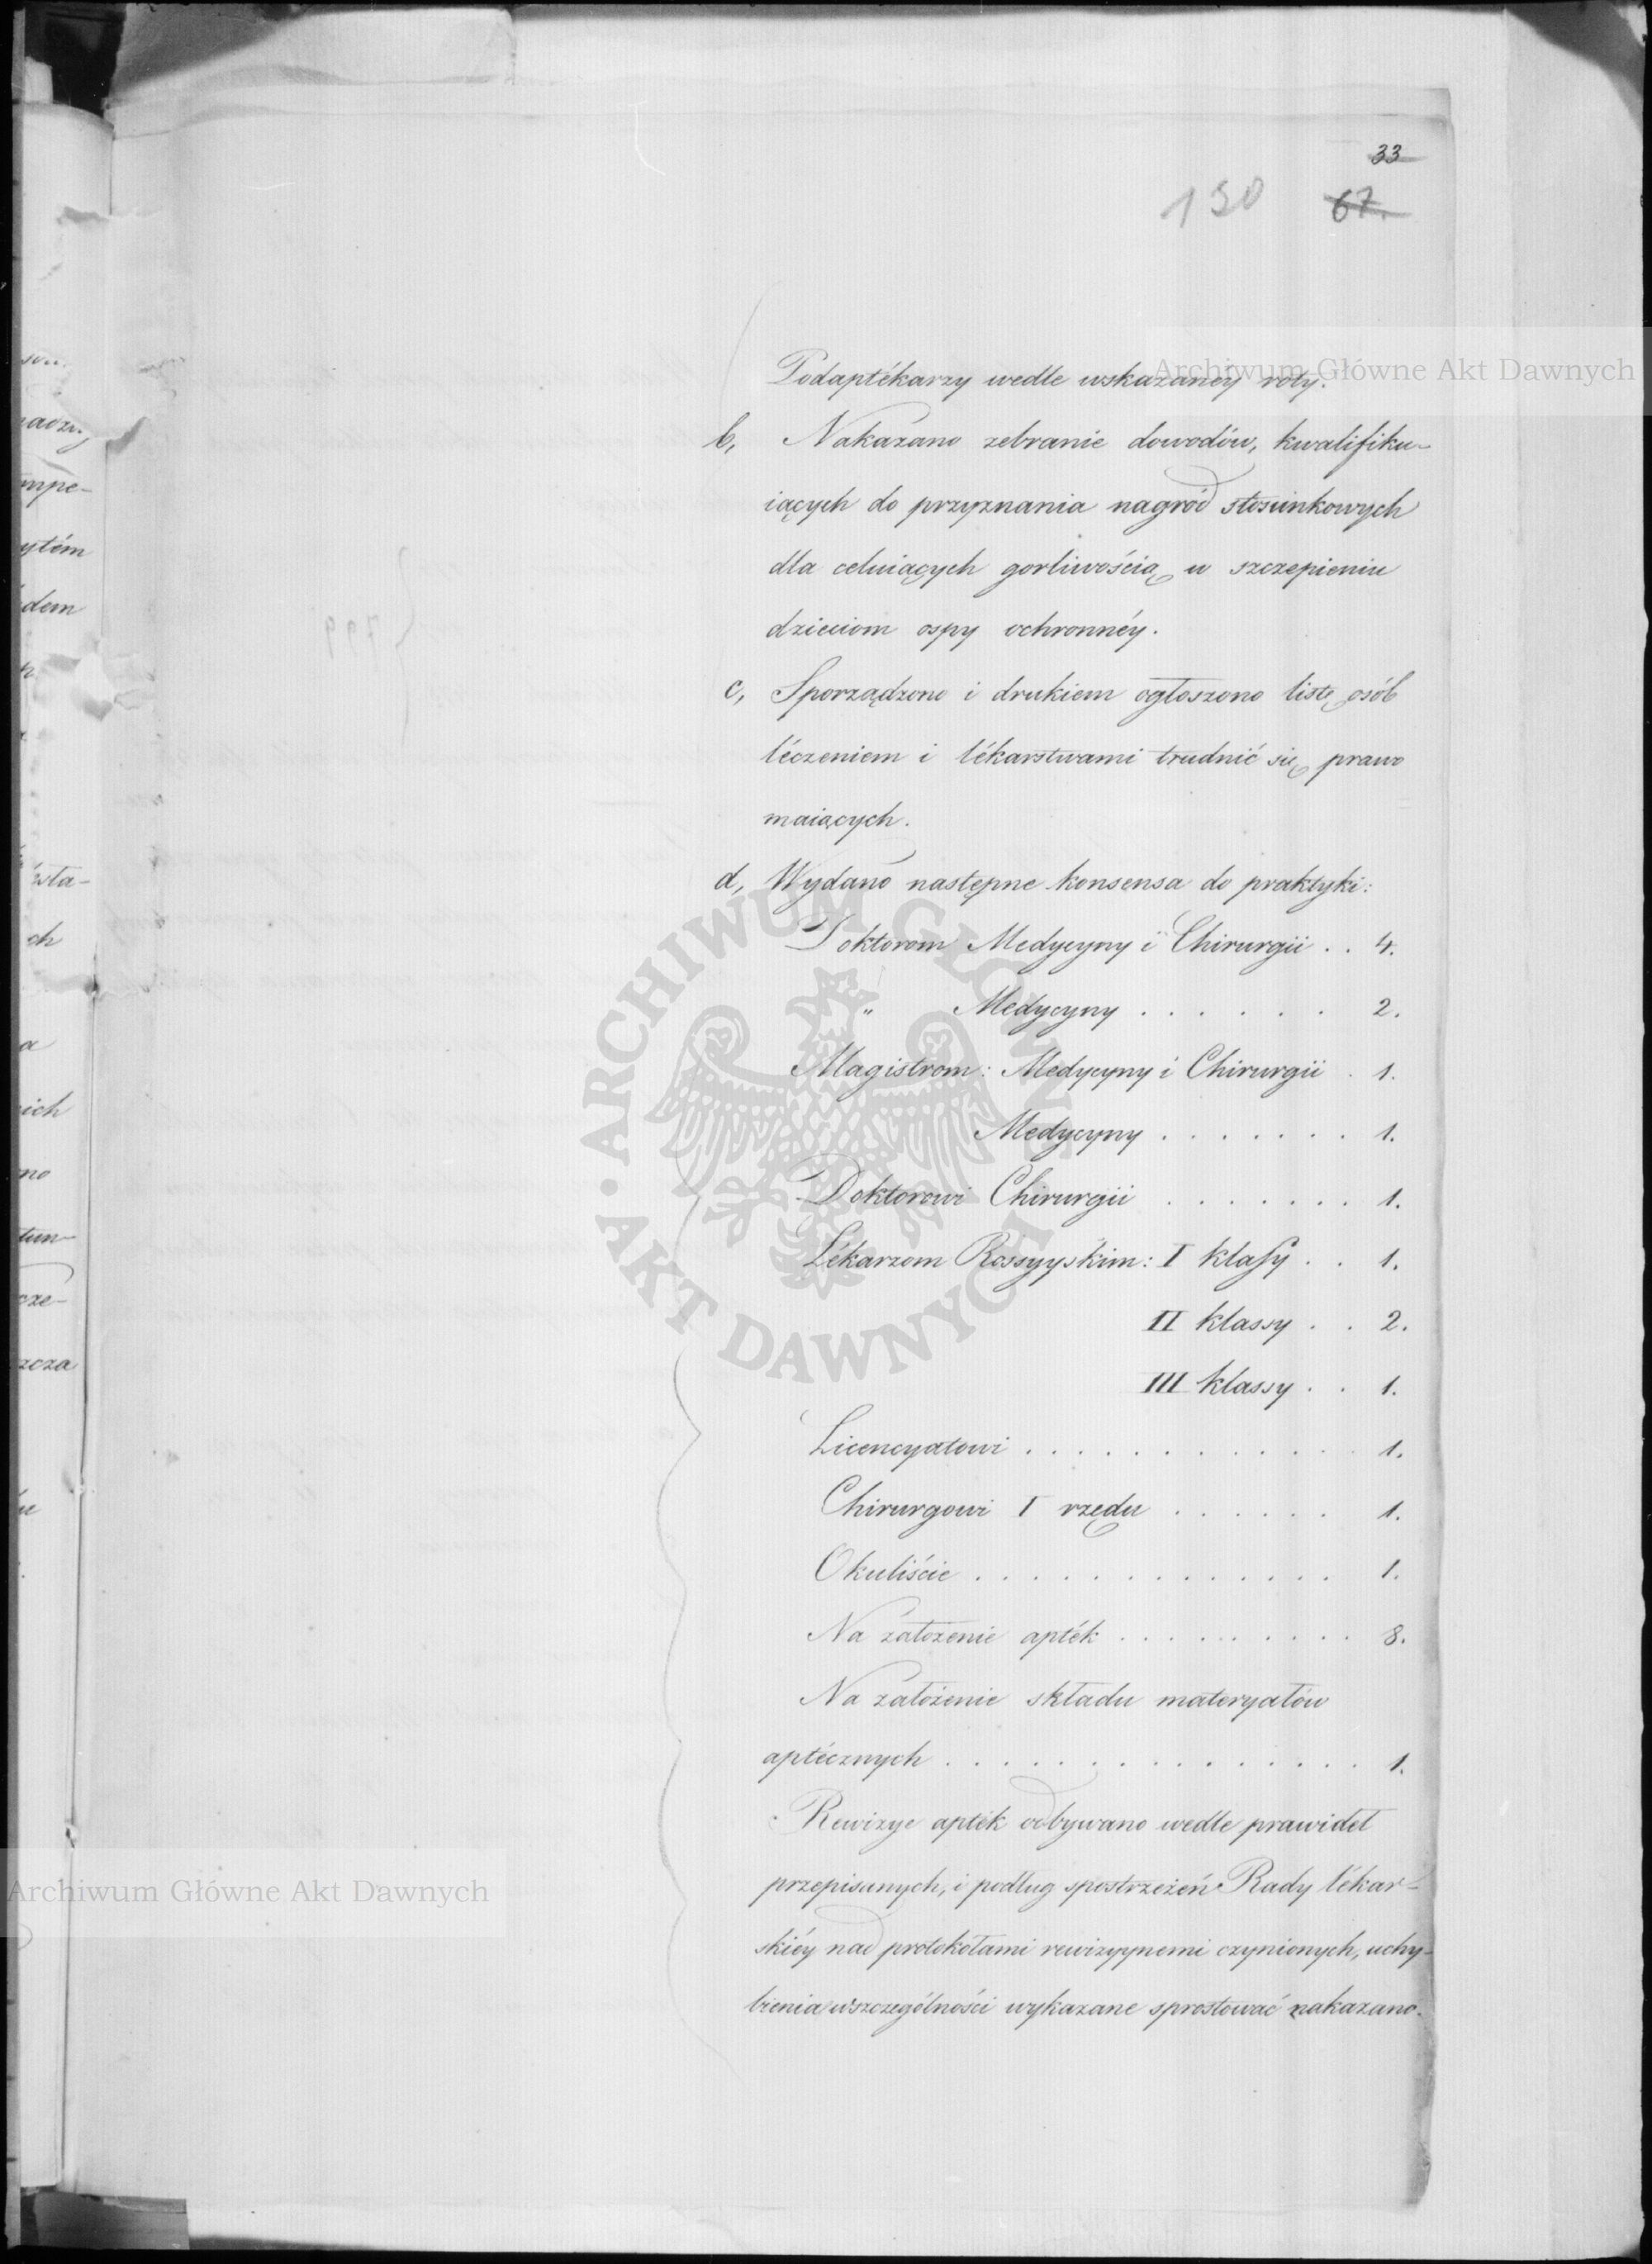 33
130 67.
Podaptékarzy wedle wskazanéy roty.
b, Nakazano zebranie dowodów, kwalifiku-
iących do przyznania nagród stosunkowych
dla celuiących gorliwością w szczepieniu
dzieciom ospy ochronnéy.
c, Sporządzono i drukiem ogłoszono listę osób
léczeniem i lékarstwami trudnić się prawo
maiących.
d, Wydano następne konsensa do praktyki:
Doktorom Medycyny i Chirurgii . . 4.
" Medycyny . . . . . . 2.
Magistrom: Medycyny i Chirurgii . 1.
Medycyny . . . . . . . 1.
Doktorowi Chirurgii . . . . . . . 1.
Lékarzom Rossyyskim: I klassy . . 1.
II klassy . . 2.
III klassy . . 1.
Licencyatowi . . . . . . . . . . . . 1.
Chirurgowi I rzędu . . . . . . 1.
Okuliście . . . . . . . . . . . . . 1.
Na założenie apték . . . . . . . . . 8.
Na założenie składu materyałów
aptécznych . . . . . . . . . . . . . . . 1.
Rewizye apték odbywano wedle prawideł
przepisanych, i podług spostrzeżeń Rady lékar-
skiéy nad protokołami rewizyynemi czynionych, uchy-
bienia wszczególności wykazane sprostować nakazano.
Archiwum Główne Akt Dawnych
Archiwum Główne Akt Dawnych
ARCHIWUM GŁÓWNE AKT DAWNYCH